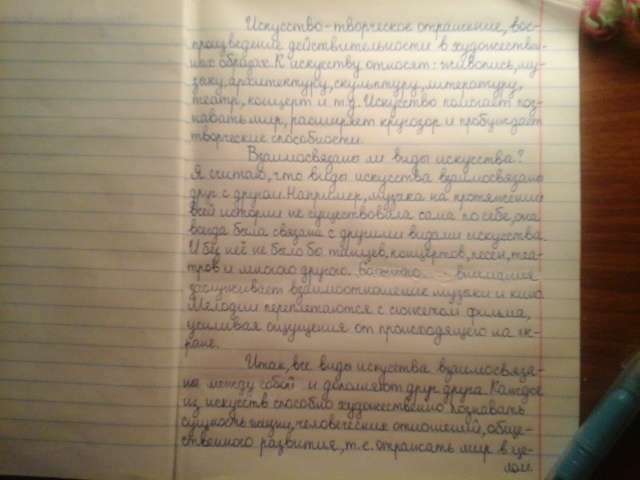 Искусство-творческое отражение, вос-
произведение действительности в художествен-
ных образах. К искусству относят: живопись, му-
зыку, архитектуру, скульптуру, литературу,
театр, концерт и т.д. Искусство помогает поз-
навать мир, расширяет кругозор и пробуждает
творческие способности.
Взаимосвязаны ли виды искусства?
Я считаю, что виды искусства взаимосвязаны
друг с другом. Например, музыка на протяжении
всей истории не существовала сама по себе, она
всегда была связана с другими видами искусства.
И без неё не было бы танцев, концертов, песен, теа-
тров и многого другого. внимания
заслуживает взаимоотношение музыки и кино.
Мелодии переплетаются с сюжетом фильма,
усиливая ощущения от происходящего на эк-
ране.
Итак, все виды искусства взаимосвяза-
ны между собой и дополняют друг друга. Каждое
из искусств способно художественно познавать
сущность жизни, человеческих отношений, обще-
ственного развития, т.е. отражать мир в це-
лом.